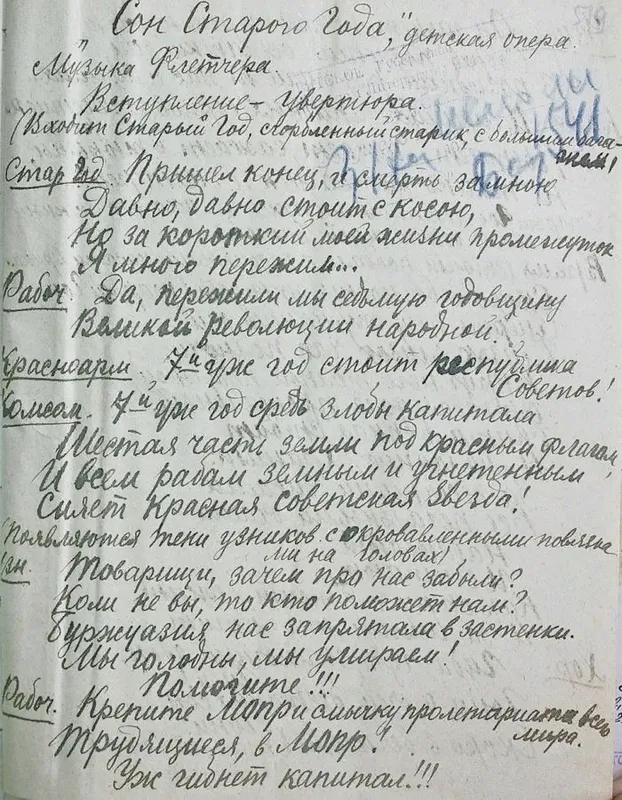 "Сон Старого Года," детская опера.
Музыка Флетчера.
Вступление – увертюра.
(Входит Старый Год, сгорбленный старик, с большим бага-
жем)
Стар Год Пришел конец, и смерть за мною
Давно, давно стоит с косою,
Но за короткий моей жизни промежуток
Я много пережил...
Рабоч. Да, пережили мы седьмую годовщину
Великой революции народной!
Красноарм 7й уж год стоит республика
Советов!
Комсом. 7й уж год средь злобы капитала
Шестая часть земли под красным флагом,
И всем рабам земным и угнетенным
Сияет Красная советская звезда!
(Появляются тени узников с окровавленными повязка-
ми на головах)
Узн. Товарищи, зачем про нас забыли?
Коли не вы, то кто поможет нам?
Буржуазия нас запрятала в застенки.
Мы голодны, мы умираем!
Помогите!!!
Рабоч. Крепите Мопр и смычку пролетариата всего
мира.
Трудящиеся, в Мопр!
Уж гибнет капитал!!!